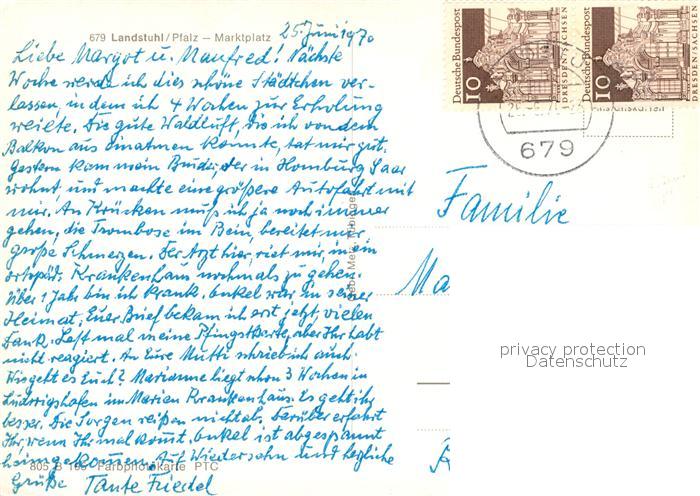 679 Landstuhl/Pfalz — Marktplatz
25. Juni 1970
Liebe Margot u. Manfred! Nächste
Woche werde ich dies schöne Städtchen ver-
lassen, in dem ich 4 Wochen zur Erholung
weilte. Die gute Waldluft, die ich von dem
Balkon aus einatmen konnte, tat mir gut.
Gestern kam mein Bruder, der in Homburg Saar
wohnt und machte eine größere Autofahrt mit
mir. An Krücken muß ich ja noch immer
gehen, die Trombose im Bein, bereitet mir
große Schmerzen. Der Arzt hier, riet mir, in ein
ortopäd. Krankenhaus nochmals zu gehen.
Über 1 Jahr bin ich krank. Onkel war in seiner
Heimat, Euer Brief bekam ich erst jetzt, vielen
Dank. Habt mal meine Pfingstkarte, aber Ihr habt
nicht reagiert. An Eure Mutti schrieb ich auch.
Wie geht es Euch? Marianne liegt schon 3 Wochen in
Ludwigshafen im Marien Krankenhaus. Es geht ihr
besser. Die Sorgen reißen nicht ab. Darüber erfahrt
Ihr, wenn Ihr mal kommt. Onkel ist abgespannt
heimgekommen. Auf Wiedersehn und herzliche
805 B Farbphotokarte PTC
Grüße Tante Friedel
Deutsche Bundespost
10
DRESDEN/SACHSEN
Deutsche Bundespost
10
DRESDEN/SACHSEN
679
Familie
Ma
privacy protection
Datenschutz